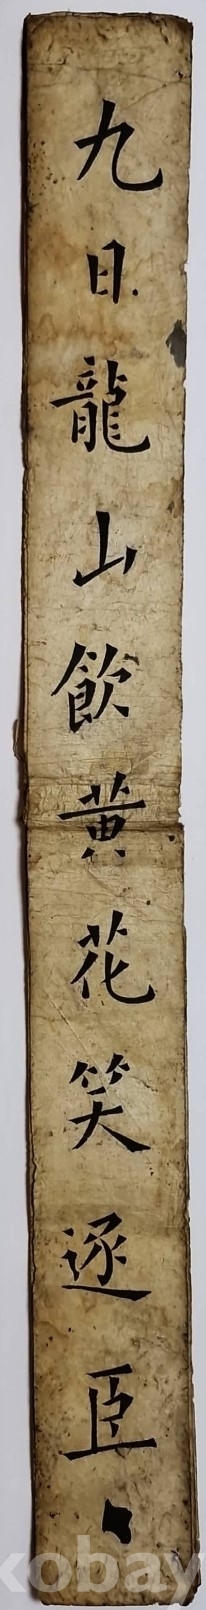 九日龍山飮黄花笑逐臣
kobay